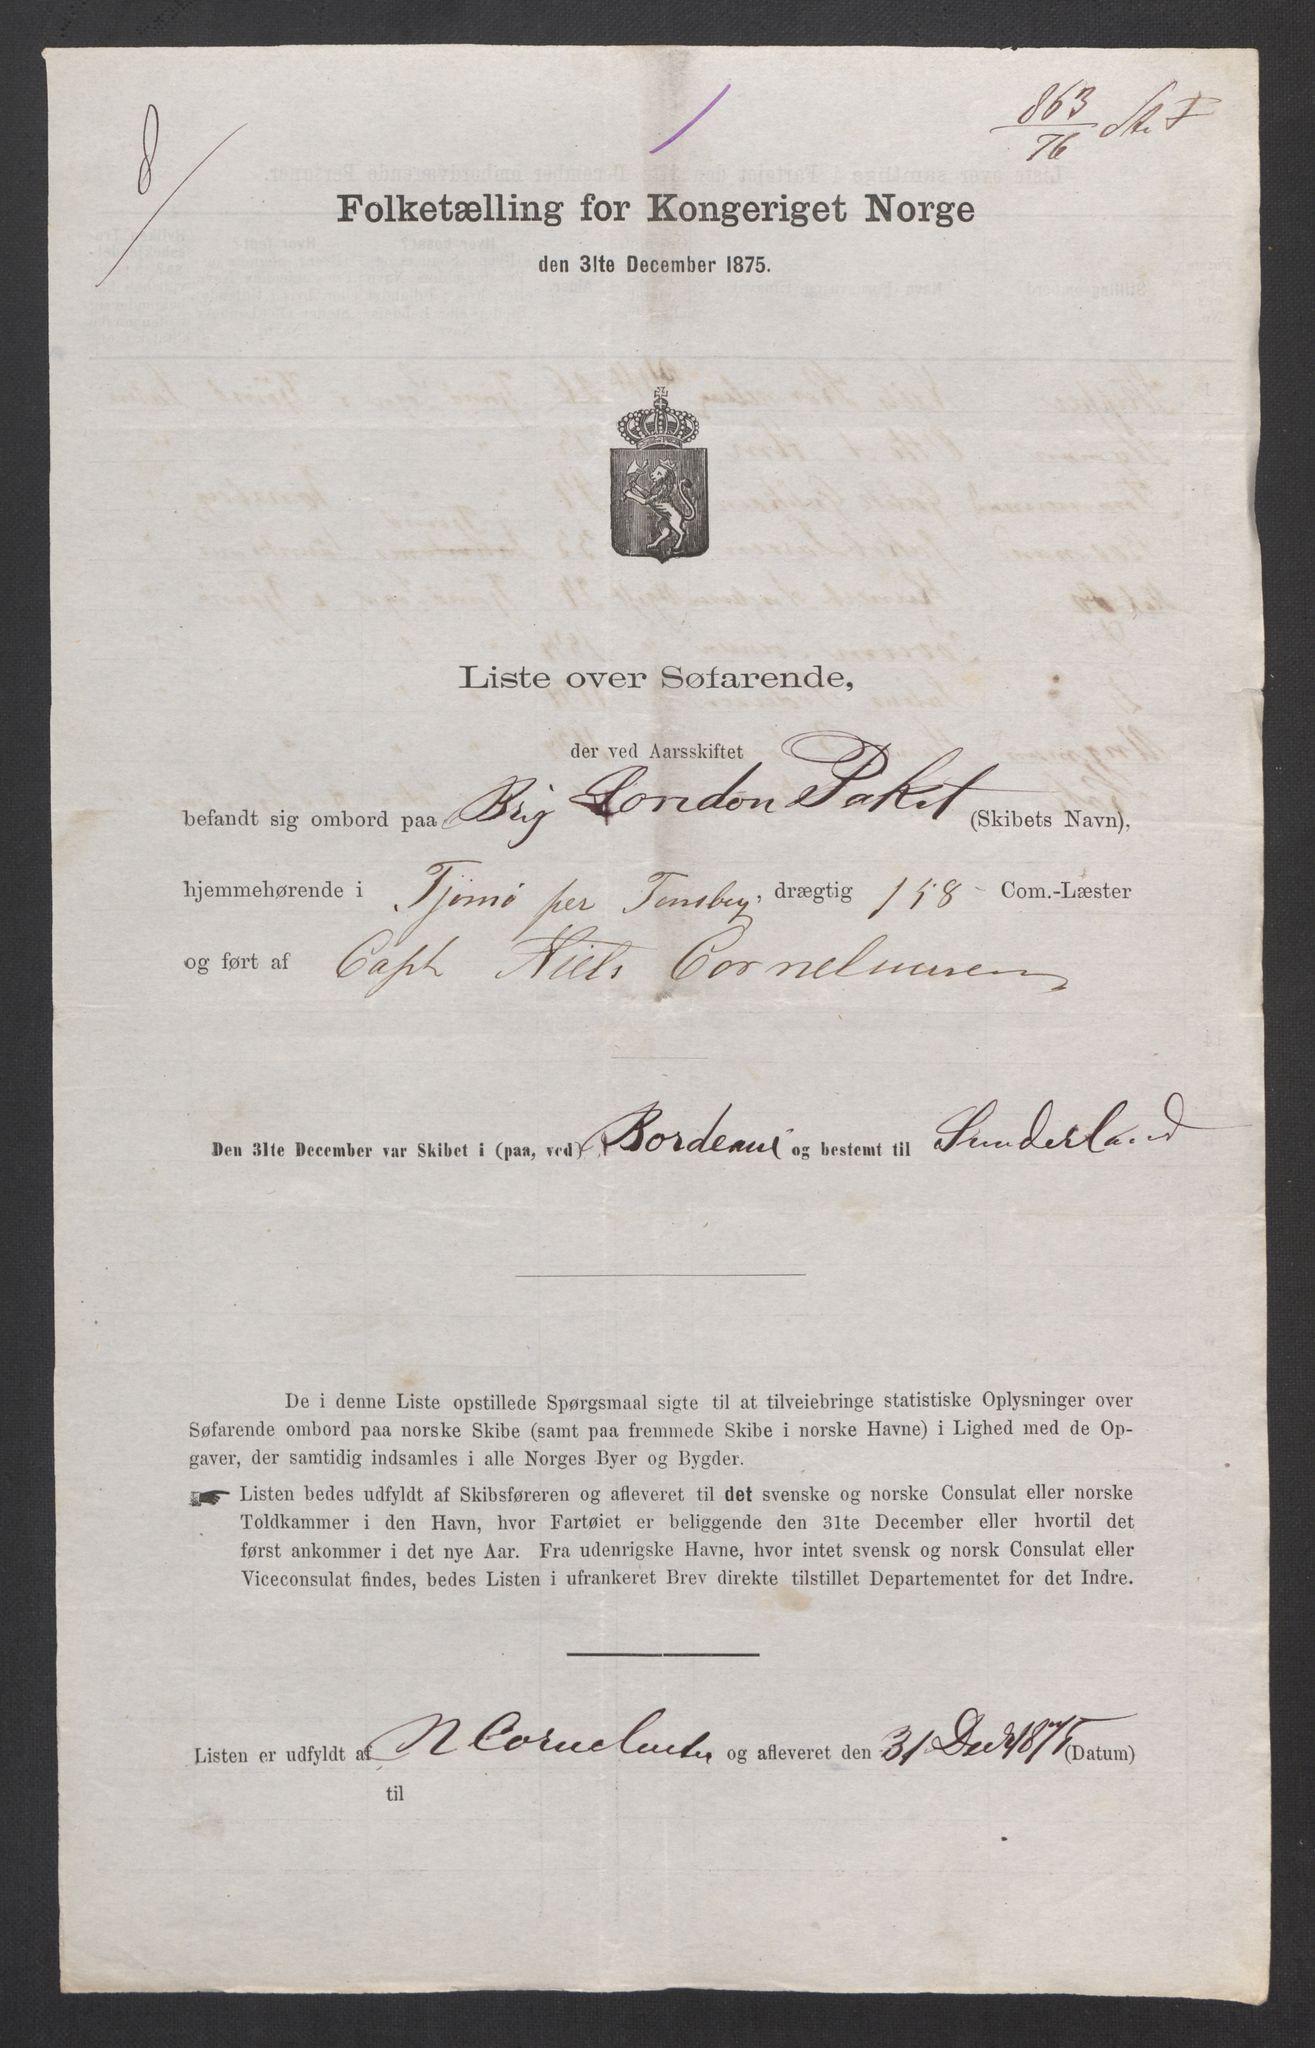 8
863
76
Folketælling for Kongeriget Norge
den 31te December 1875.
Liste over Søfarende,
der ved Aarsskiftet
befandt sig ombord paa Brig London Paket (Skibets Navn),
hjemmehørende i Tjømø per Tønsberg, drægtig 158 Com.-Læster
og ført af Capt Niels Corneliussen
Den 31te December var Skibet i (paa, ved) Bordeaux og bestemt til Sunderland
De i denne Liste opstillede Spørgsmaal sigte til at tilveiebringe statistiske Oplysninger over
Søfarende ombord paa norske Skibe (samt paa fremmede Skibe i norske Havne) i Lighed med de Op-
gaver, der samtidig indsamles i alle Norges Byer og Bygder.
Listen bedes udfyldt af Skibsføreren og afleveret til det svenske og norske Consulat eller norske
Toldkammer i den Havn, hvor Fartøiet er beliggende den 31te December eller hvortil det
først ankommer i det nye Aar. Fra udenrigske Havne, hvor intet svensk og norsk Consulat eller
Viceconsulat findes, bedes Listen i ufrankeret Brev direkte tilstillet Departementet for det Indre.
Listen er udfyldt af N og afleveret den 31 Decb 1875 (Datum)
til